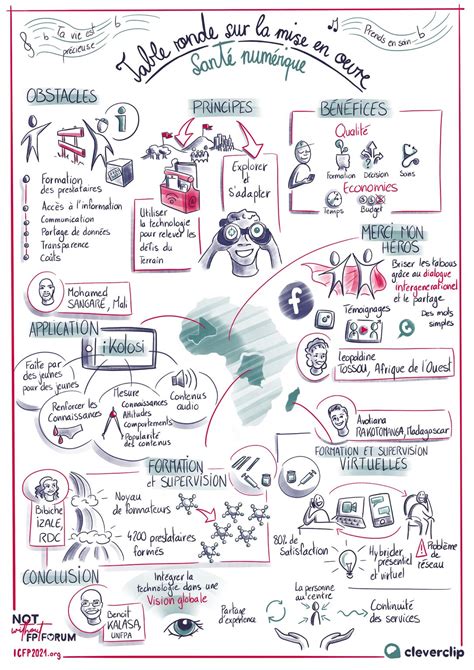 Ta vie est
précieuse
Table ronde sur la mise en œuvre
Santé numérique
Prends-en soin
OBSTACLES
Formation
des prestataires
Accès à l'information
Communication
Partage de données
Transparence
Coûts
PRINCIPES
Utiliser
la technologie
pour relever les
défis du
Terrain
Explorer
et
s'adapter
BÉNÉFICES
Qualité
Formation
Décision
Soins
Economies
Temps
Budget
Mohamed
SANGARÉ, Mali
MERCI MON
HÉROS
Briser les tabous
grâce au dialogue
intergénérationel
et le partage
Témoignages
Des mots
simples
Leopoldine
TOSSOU, Afrique de l'Ouest
APPLICATION
iKolosi
Faite par
des jeunes
pour des jeunes
Renforcer les
Connaissances
Mesure
Connaissances
Attitudes
comportements
Popularité
des contenus
Contenus
audio
RAKOTOMANGA, Madagascar
FORMATION
ET SUPERVISION
Bibiche
IZALE,
RDC
Noyau
de formateurs
4200 prestataires
formés
FORMATION ET SUPERVISION
VIRTUELLES
80% de
Satisfaction
Hybrider
présentiel
et virtuel
Problème
de
réseau
CONCLUSION
Benoit
KALASA,
UNFPA
Intégrer la
technologie dans une
Vision globale
Partage
d'expérience
La personne
au centre
Continuité
des services
NOT
without
FP FORUM
ICFP2021.org
cleverclip